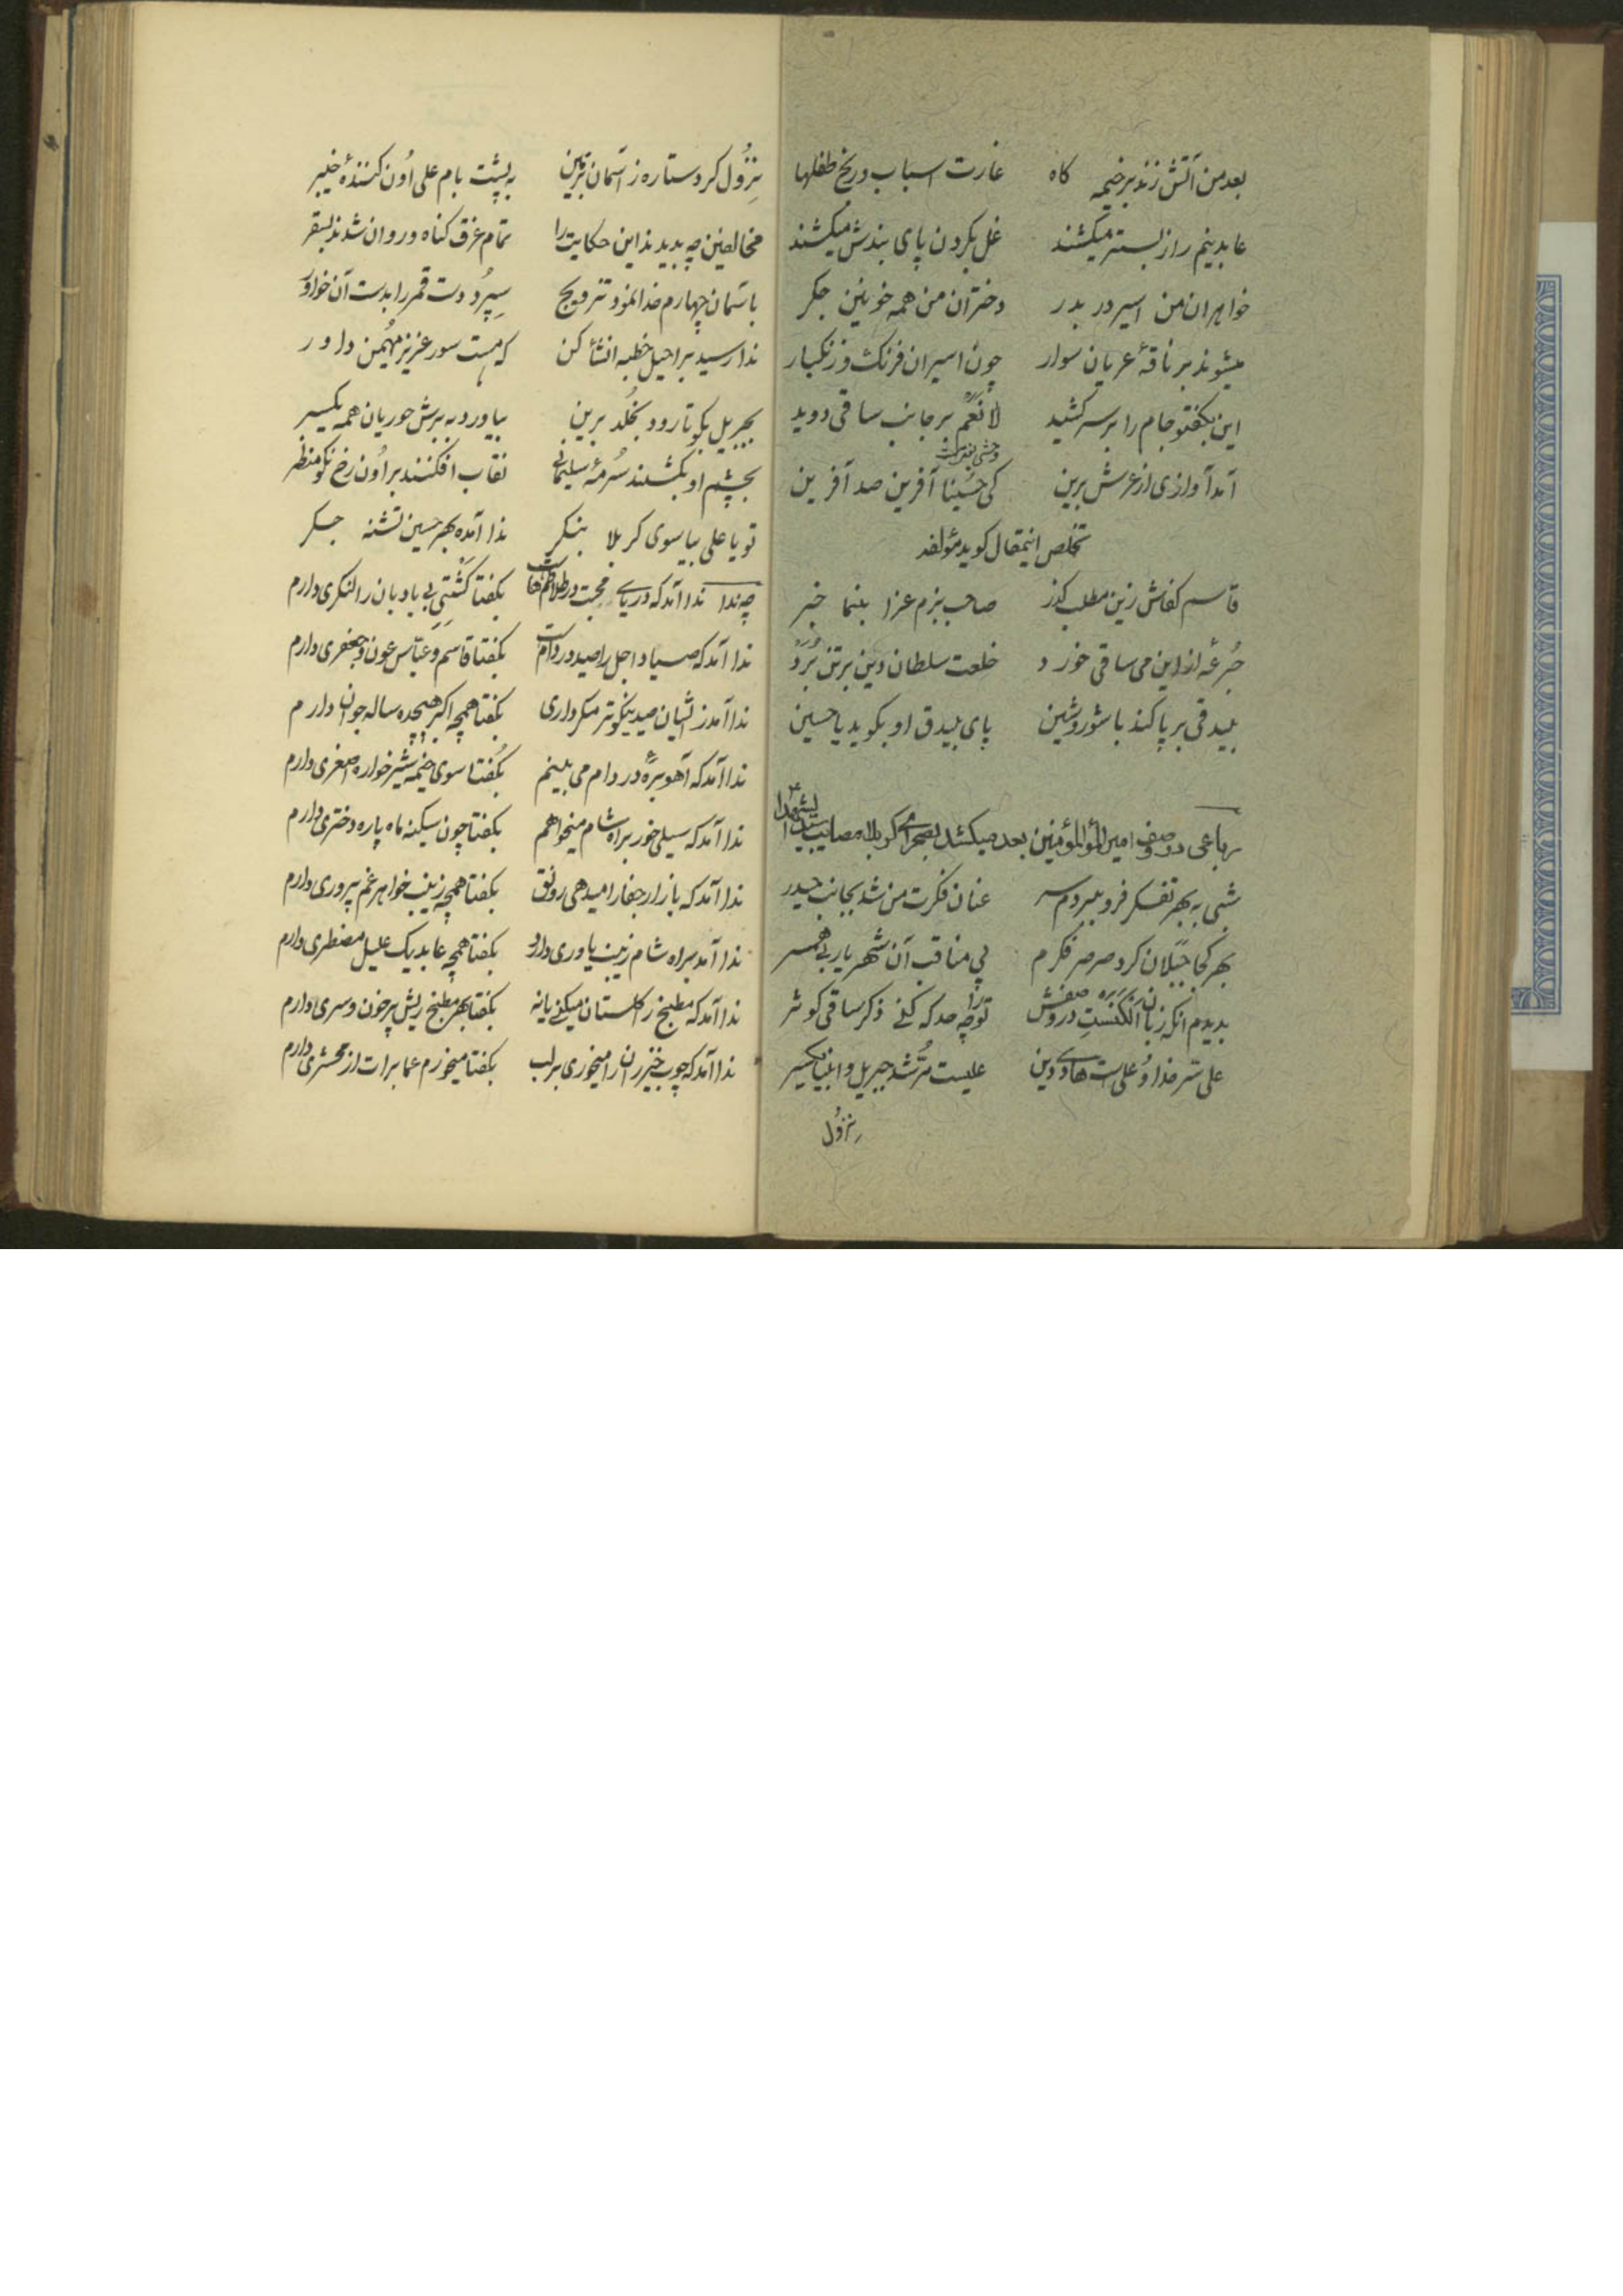 بعد من آتش زند بر خیمه گاه غارت اسباب و رنج طفلها
عابدینم را ز بستر میکشند غل بگردن پای بندش میکشند
خواهران من اسیر در بدر دختران من همه خونین جگر
میشوند بر ناقهٔ عریان سوار چون اسیران فرنگ و زنگبار
این بگفتو جام را بر سر کشید لا نعم بر جانب ساقی دوید
آمد آوازی از عرش برین کی حسینا آفرین صد آفرین
تخلص اینمقال گوید مؤلفه
قاسم کفاش زین مطلب گذر صاحب بزم عزا بنما خبر
جُرعه از این می ساقی خورد خلعت سلطان دین بر تن بُرَد
بیدقی بر پا کند با شور و شین پای بیدق او بگوید یا حسین
رباعی در وصف امیرالمؤمنین بعد میکشد بصحرای کربلا مصایب سیدالشهدا
شبی به بهر تفکر فرو ببردم سر عنان فکرت من شد بجانب حیدر
بهر کجا جَیَلان کرد صرصر فکرم پی مناقب آن شهریار بی همسر
بدیدم آنکه زبان الکنست در وصفش تو را چه حد که کنی ذکر ساقی کوثر
علی سَرِ خدا و علی ست هادی دین علیست مُرشد جبریل و انبیا یکسر
نزول
نِزُول کرد ستاره ز آسمان بزمین به پشت بام علی اُون کنندهٔ خیبر
مخالفین چه بدیدند این حکایت را تمام غرق گناه و روان شدند بسقر
باسمان چهارم خدا نمود تزویج سِپُرد دست قمر را بدست آن خواوَر
ندا رسید براحیل خطبه انشأ کن که هست سور عزیز مُهیمن داور
بجبریل بگو تا رود بخُلد برین بیاورد به برش حوریان همه یکسر
بچشم او بکشند سُرمهٔ سلیمانی نقاب افکنند بر اُون رخ نکو منظر
تو یا علی بیا سوی کربلا بنگر ندا آمده بهر حسین تشنه جگر
چه ندا ندا آمد که دریای محبت در طلاطمهاست بگفتا کَشتیِ بی بادبان را لنگری دارم
ندا آمد که صیاد اجل را صید در دام است بگفتا قاسم و عباس عون و جعفری دارم
ندا آمد ز ایشان صید نیکوتر مگر داری بگفتا همچه اکبر هیجده ساله جوان دارم
ندا آمد که آهو برّهٔ در دام می بینم بگُفتا سوی خیمه شیر خواره اصغری دارم
ندا آمد که سیلی خور براه شام میخواهم بگفتا چون سکینه ماه پاره دختری دارم
ندا آمد که بازار جفا را میدهی رونق بگفتا همچه زینب خواهر غم پروری دارم
ندا آمد براه شام زینب یاوری دارد بگفتا همچه عابد یک علیل مضطری دارم
ندا آمد که مطبخ ز گلستان میکنی یا نه بگفتا بهر مطبخ ریش پر خون و سری دارم
ندا آمد که چوب خیزران را میخوری بر لب بگفتا میخورم عما برات از محشری دارم